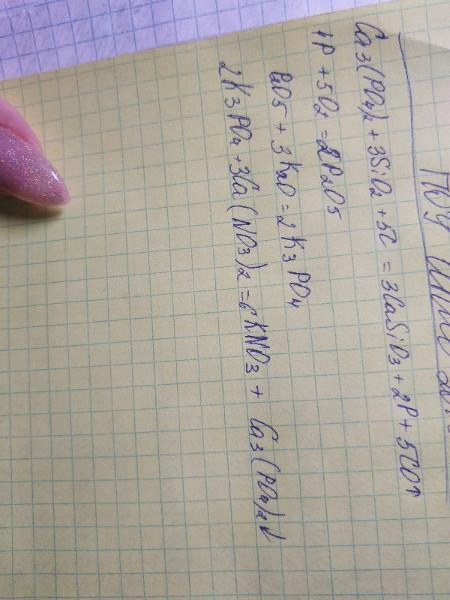 под
Ca3(PO4)2 + 3SiO2 + 5C = 3CaSiO3 + 2P + 5CO↑
4P + 5O2 = 2P2O5
P2O5 + 3K2O = 2K3PO4
2K3PO4 + 3Ca(NO3)2 = 6KNO3 + Ca3(PO4)2↓